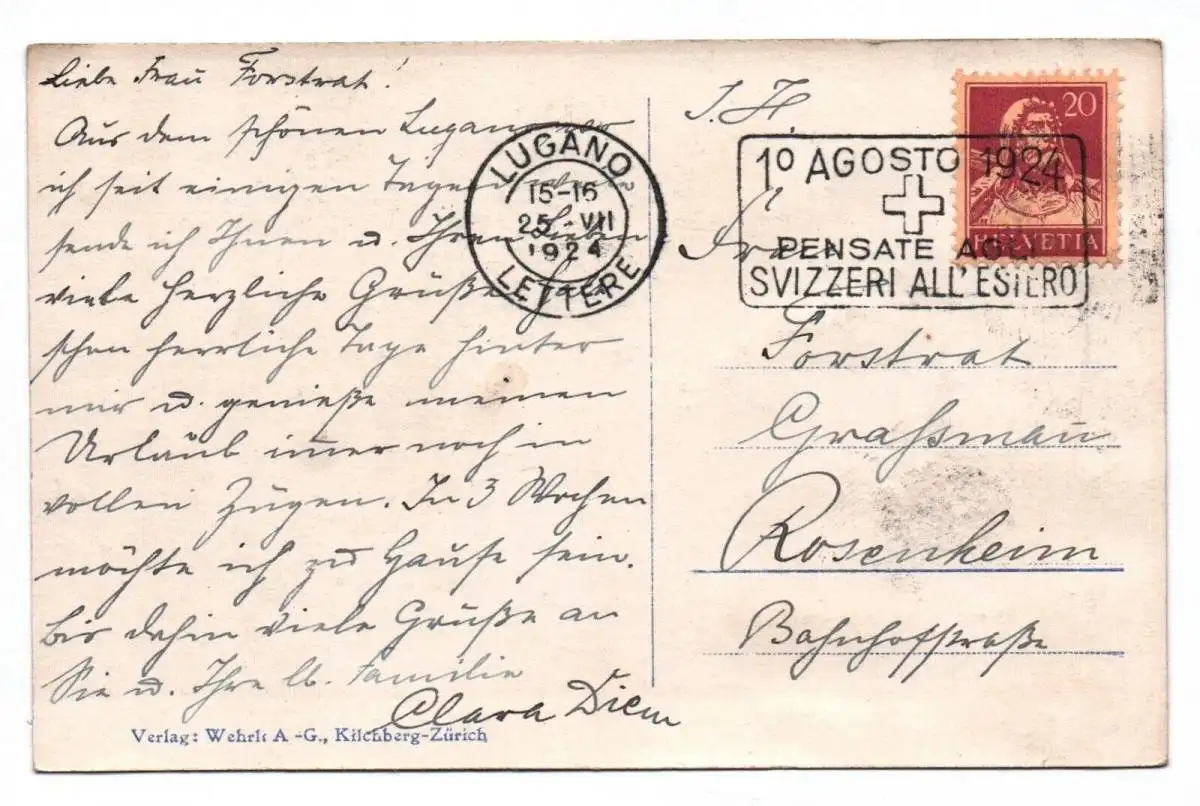 Liebe Frau Forstrat!
Aus dem schönen Lugano, wo
ich seit einigen Tagen
sende ich Ihnen u. Ihren Lieben
viele herzliche Grüße.
schon herrliche Tage hinter
mir u. genieße meinen
Urlaub immer noch in
vollen Zügen. In 3 Wochen
möchte ich zu Hause sein.
Bis dahin viele Grüße an
Sie u. Ihre lb. Familie
Clara Diem
Verlag: Wehrli A.-G., Kilchberg-Zürich
LUGANO
15-16
25.VII
1924
LETTERE
1º AGOSTO 1924
PENSATE AGLI
SVIZZERI ALL'ESTERO
20
HELVETIA
I. H.
Frau
Forstrat
Graßmann
Rosenheim
Bahnhofstraße